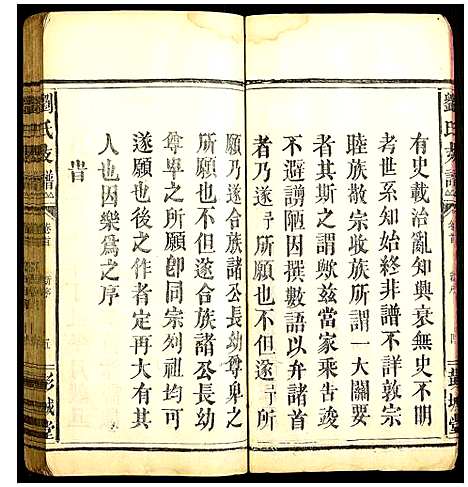 劉氏支譜
卷首
彭城堂
有史載治亂知興衰無史不明
考世系知始終非譜不詳敦宗
睦族散宗收族所謂一大關要
者其斯之謂歟兹當家乘告竣
不避譾陋因撰數語以弁諸首
者乃遂予所願也不但遂予所
願乃遂合族諸公長幼尊卑之
所願也不但遂合族諸公長幼
尊卑之所願卽同宗列祖均可
遂願也後之作者定再大有其
人也因樂爲之序
旹
劉氏支譜
卷首
五
彭城堂